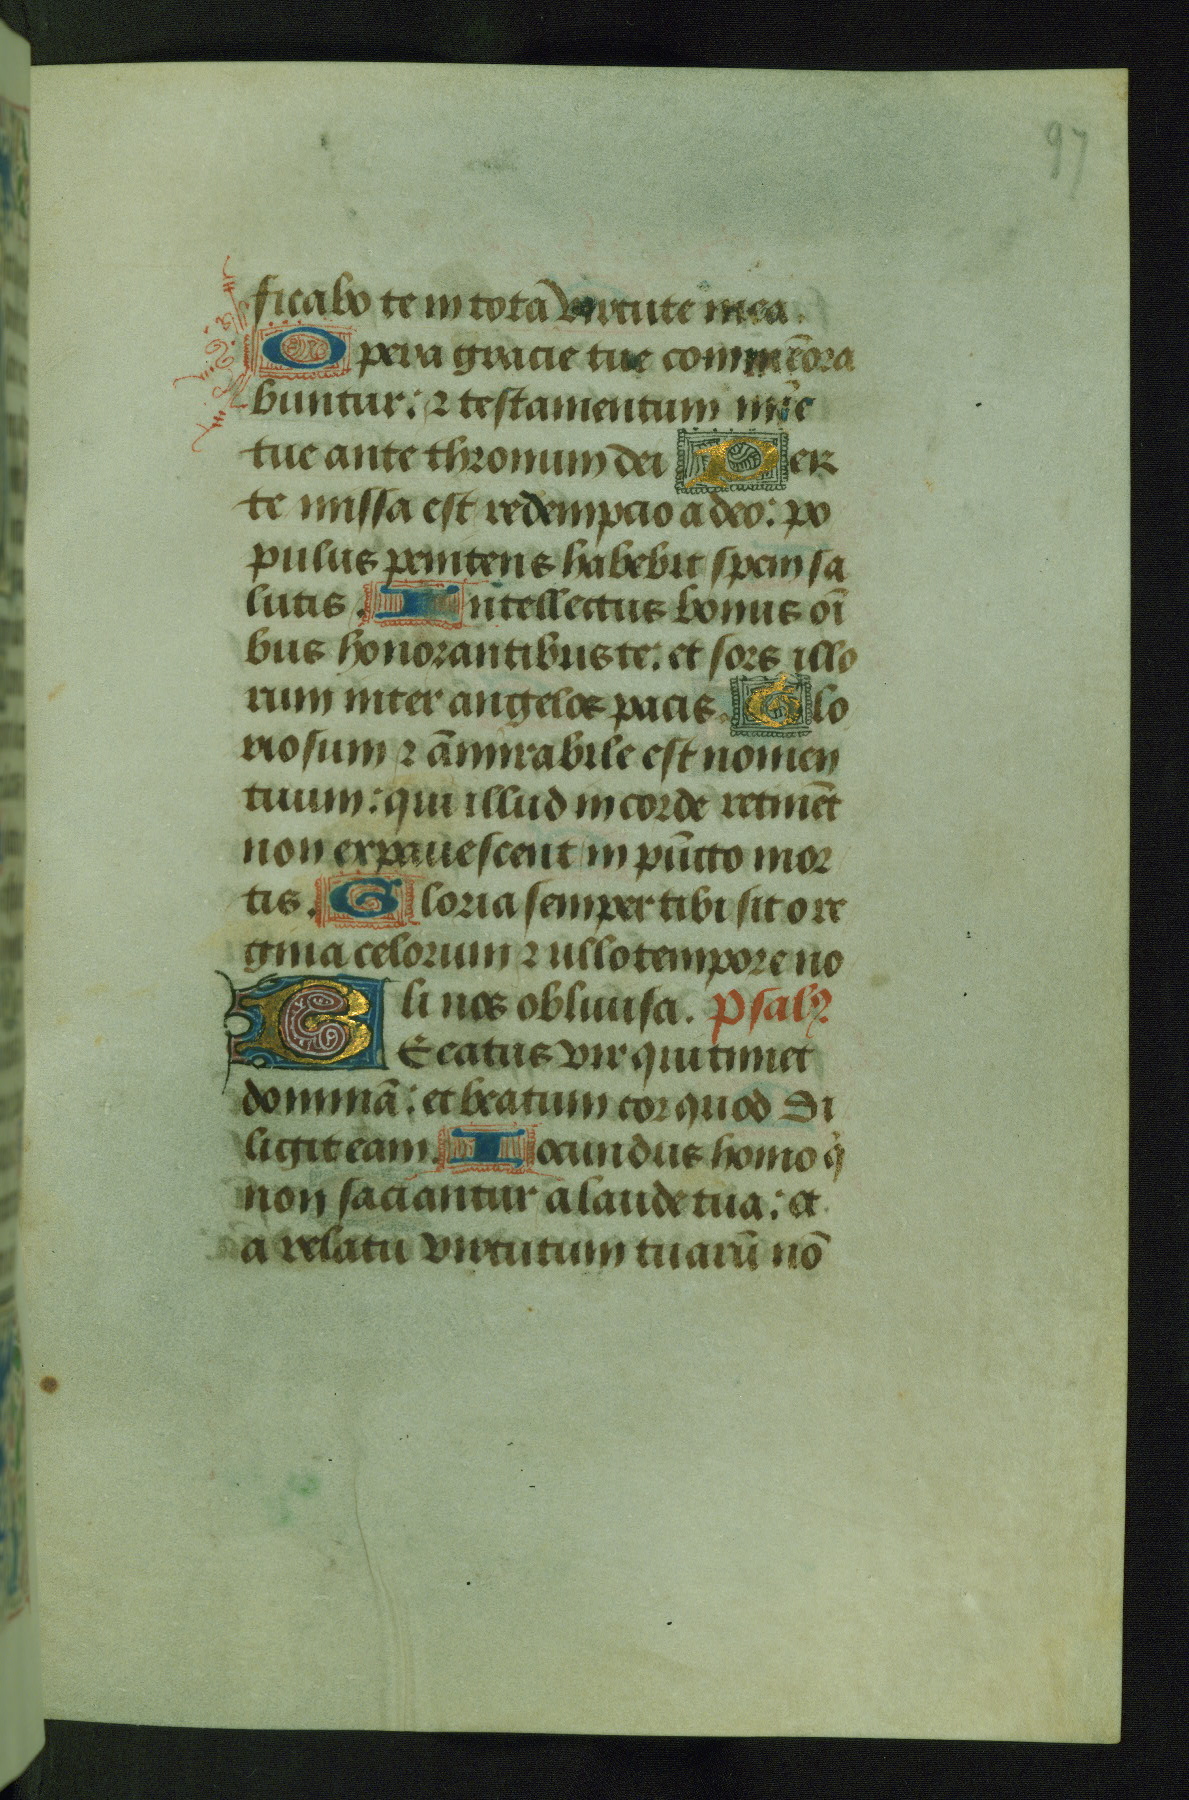 97
ficabo te in tota virtute mea.
Opera gracie tue com̄mēora
buntur: ⁊ testamentum mīe
tue ante thronum dei Per
te missa est redempcio a deo: po
pulus penitens habebit spem sa
lutis. Intellectus bonus oī
bus honorantibus te: et sors illo
rum inter angelos pacis. Glo
riosum ⁊ āmirabile est nomen
tuum: qui illud in corde retinēt
non expauescent in pūcto mor
tis. Gloria semper tibi sit o re
gina celorum ⁊ ullo tempore no
li nos obliuisa. Psalꝰ
Beatus vir qui timet
dominā: et beatum cor quod di
ligit eam. Iocundus homo q̇
non saciantur a laude tua: et
a relatu virtutum tuarū nō